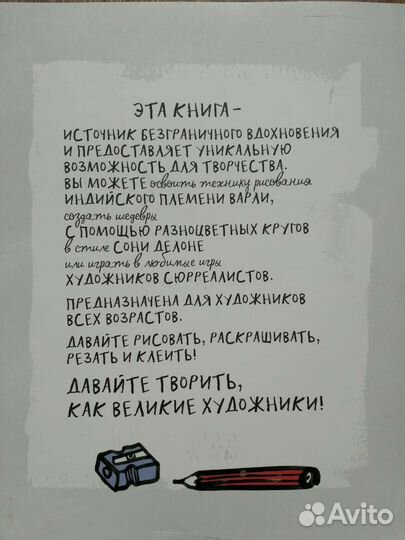 ЭТА КНИГА –
ИСТОЧНИК БЕЗГРАНИЧНОГО ВДОХНОВЕНИЯ
И ПРЕДОСТАВЛЯЕТ УНИКАЛЬНУЮ
ВОЗМОЖНОСТЬ ДЛЯ ТВОРЧЕСТВА.
ВЫ МОЖЕТЕ освоить технику рисования
ИНДИЙСКОГО ПЛЕМЕНИ ВАРЛИ,
создать шедевры
С ПОМОЩЬЮ РАЗНОЦВЕТНЫХ КРУГОВ
в стиле СОНИ ДЕЛОНЕ
или играть в любимые игры
ХУДОЖНИКОВ СЮРРЕАЛИСТОВ.
ПРЕДНАЗНАЧЕНА ДЛЯ ХУДОЖНИКОВ
ВСЕХ ВОЗРАСТОВ.
ДАВАЙТЕ РИСОВАТЬ, РАСКРАШИВАТЬ,
РЕЗАТЬ И КЛЕИТЬ!
ДАВАЙТЕ ТВОРИТЬ,
КАК ВЕЛИКИЕ ХУДОЖНИКИ!
Avito